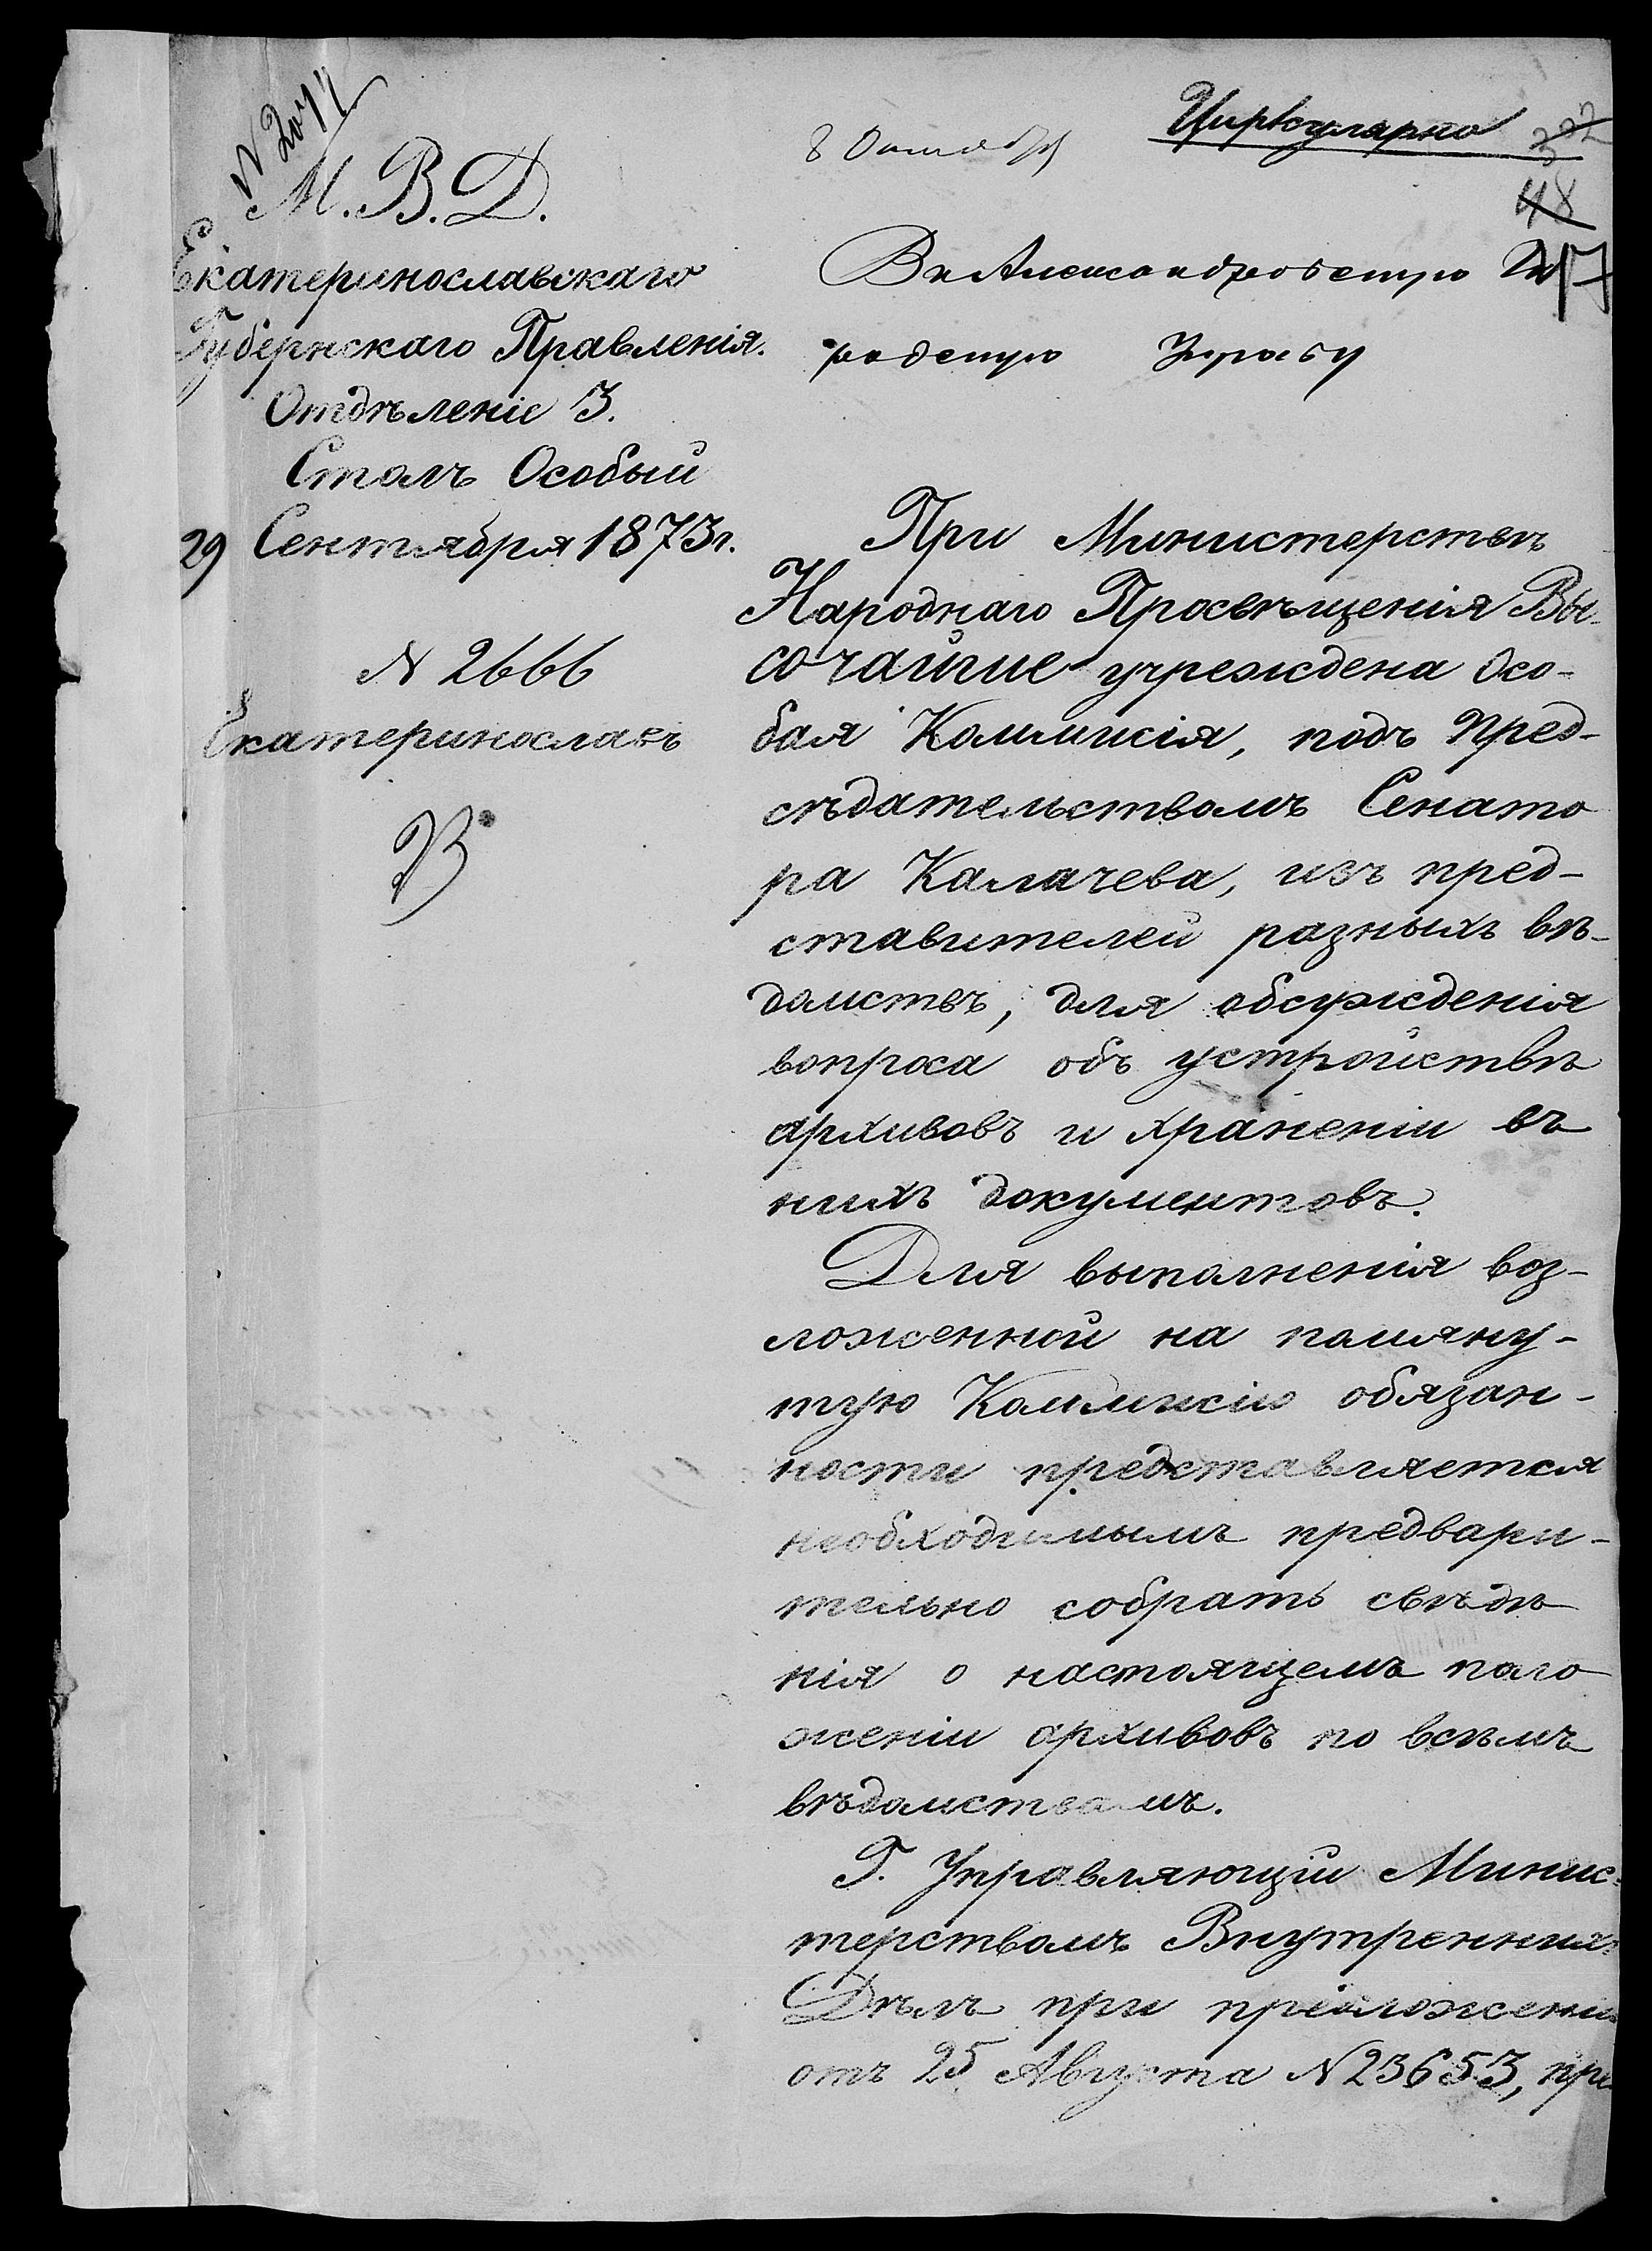 N 2077
М. В. Д.
Екатеринославскаго
Губернскаго Правленія.
Отдѣленіе 3.
Столъ Особый
29 Сентября 1873 г.
N 2666
Екатеринославъ
В
8 Октября
Циркулярно
302
48
47
Въ Александровскую Го
родскую Управу
При Министерствѣ
Народнаго Просвѣщенія Вы-
сочайше учреждена Осо-
бая Коммисія, подъ пред-
сѣдательствомъ Сенато
ра Калачева, изъ пред-
ставителей разныхъ вѣ-
домствъ, для обсужденія
вопроса объ устройствѣ
архивовъ и храненіи въ
нихъ документовъ.
Для выполненія воз-
ложенной на помяну-
тую Коммисію обязан-
ности представляется
необходимымъ предвари-
тельно собрать свѣдѣ
нія о настоящемъ поло
женіи архивовъ по всѣмъ
вѣдомствамъ.
Г. Управляющій Минис-
терствомъ Внутреннихъ
Дѣлъ при предложеніи
отъ 25 Августа N 23653, пре